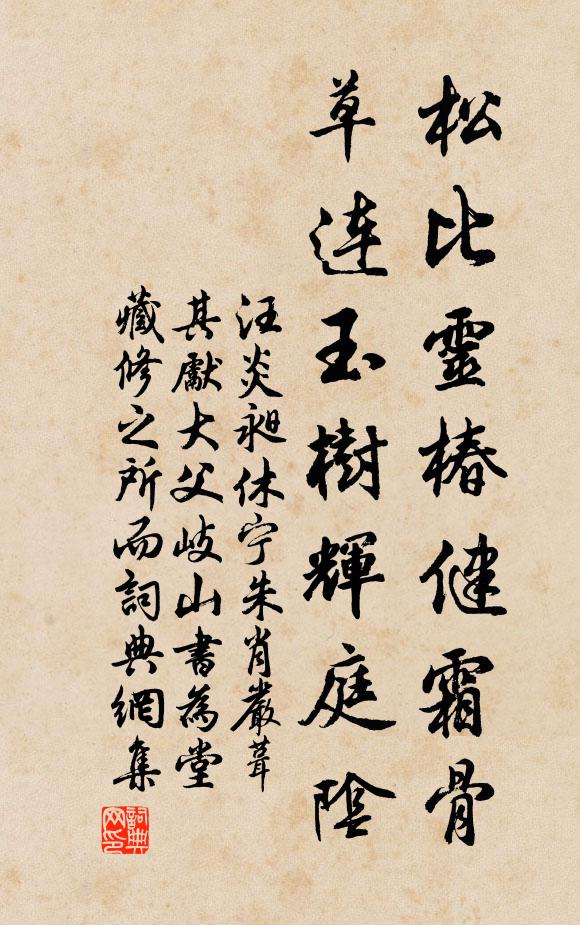 松比靈椿健霜骨
草連玉樹輝庭陰
汪炎昶休宁朱肖嚴葺
其獻大父岐山書為堂
藏修之所而詞典網集
詞典网印